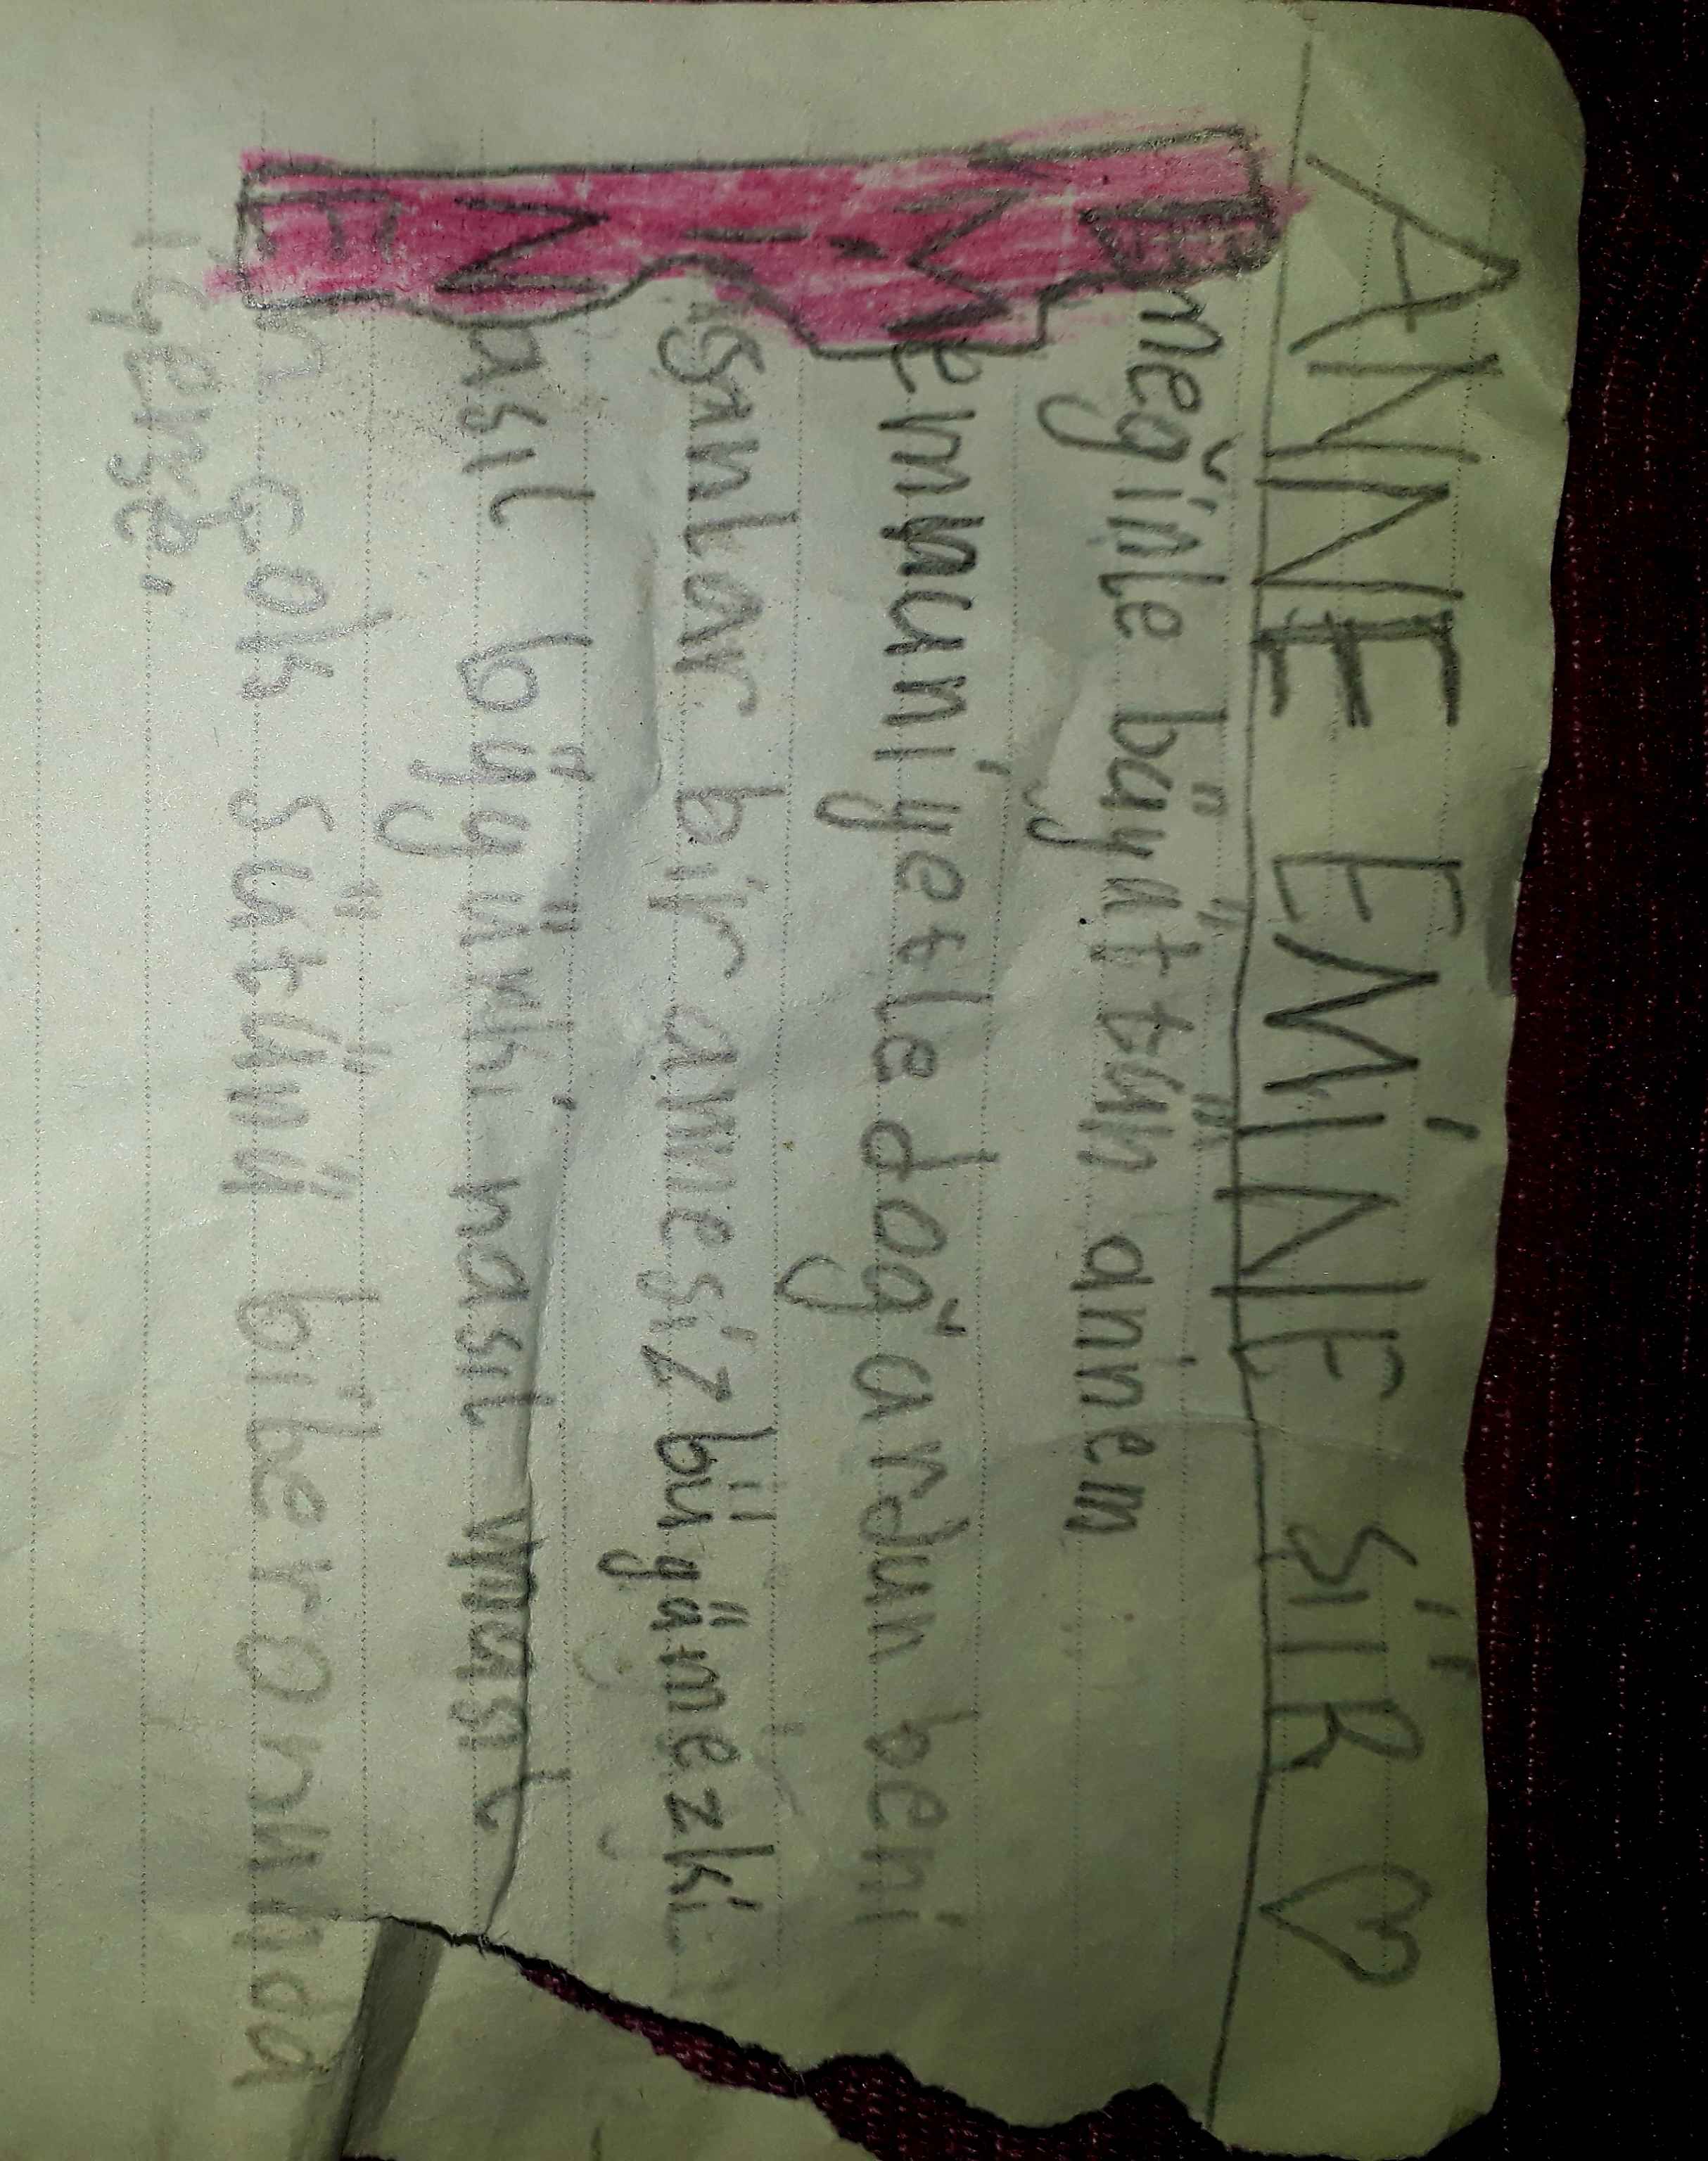 ANNE EMİNE ŞİİR ♡
Emeğinle büyüttün annem
Memnuniyetle doğardun beni
İnsanlar bir annesiz büyümezki
Nasıl büyürki nasıl nasıl
En çok sütünü biberonunda
içerse.